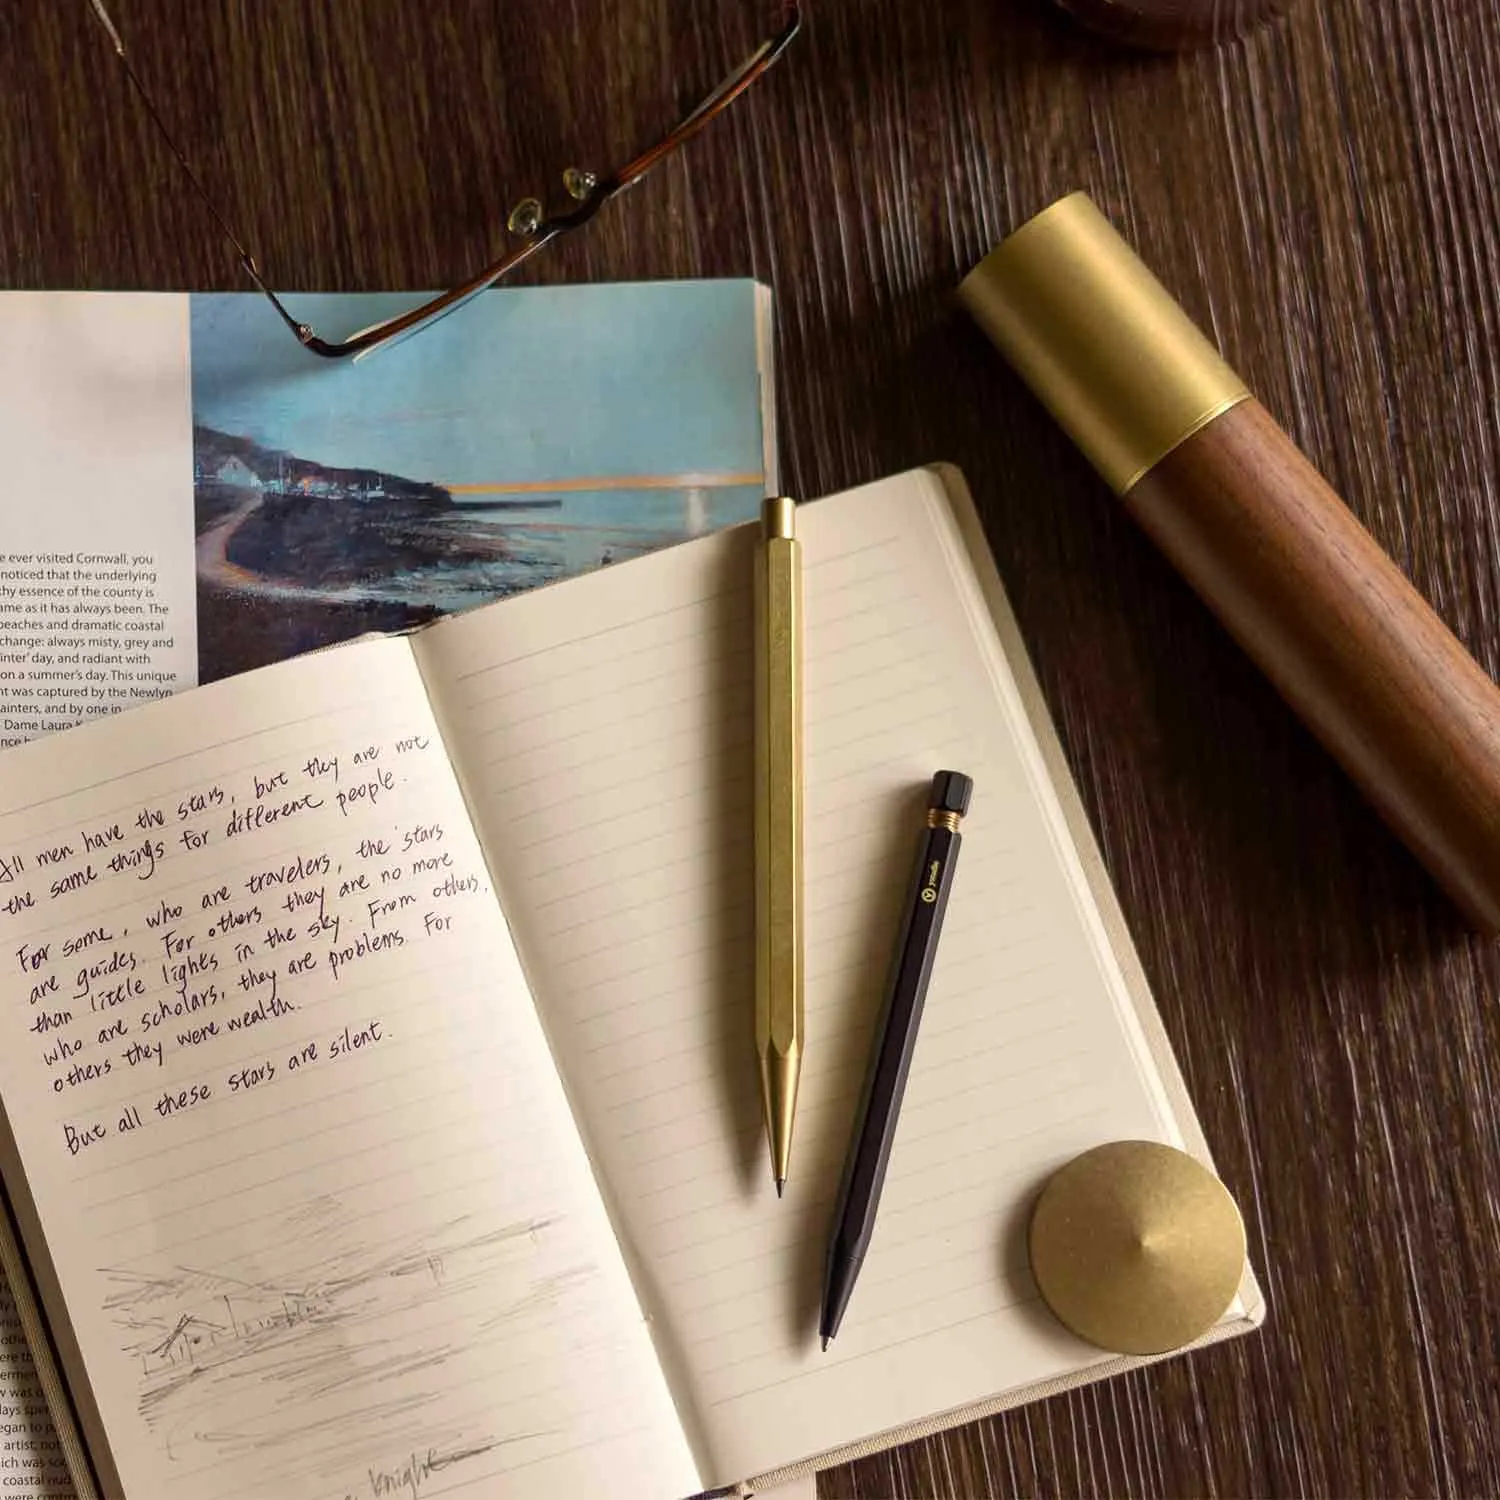 e ever visited Cornwall, you
noticed that the underlying
hy essence of the county is
ame as it has always been. The
beaches and dramatic coastal
change: always misty, grey and
inter' day, and radiant with
on a summer's day. This unique
nt was captured by the Newlyn
ainters, and by one in
Dame Laura K
All men have the stars, but they are not
the same things for different people.
For some, who are travelers, the stars
are guides. For others they are no more
than little lights in the sky. From others,
who are scholars, they are problems. For
others they were wealth.
But all these stars are silent.
knight
ystudio
ere th
ermen
w was
lays spe
egan to p
artist, not
ich was so
coastal nud
were contro